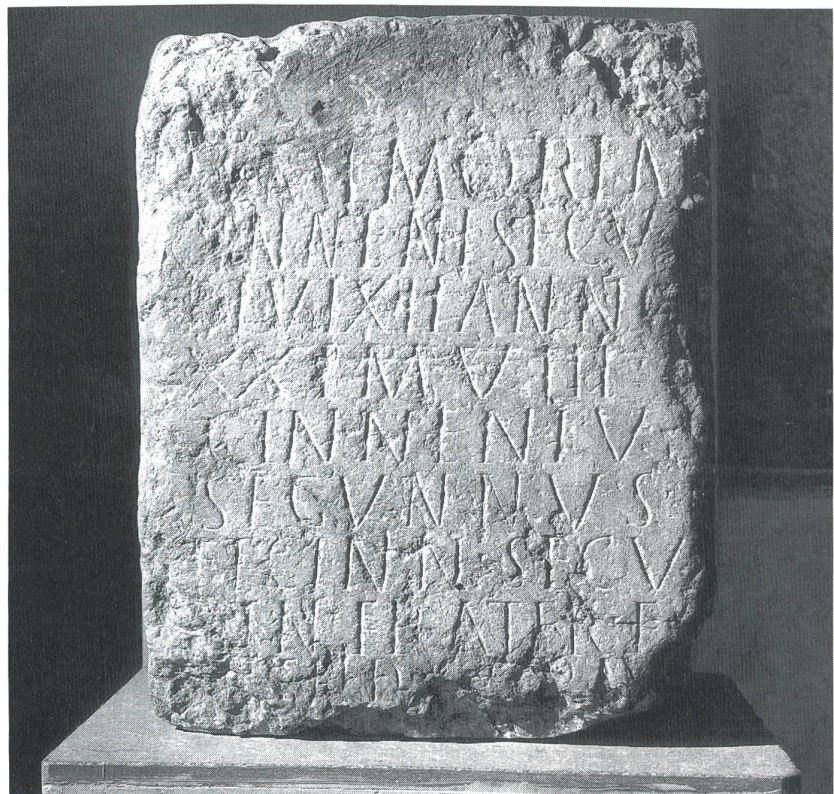 MEMORIA
NNENI SECV
VIXIT ANN
XI M VIII
CINNENIV
SECVNNVS
ET CINN SECV
FRATER F